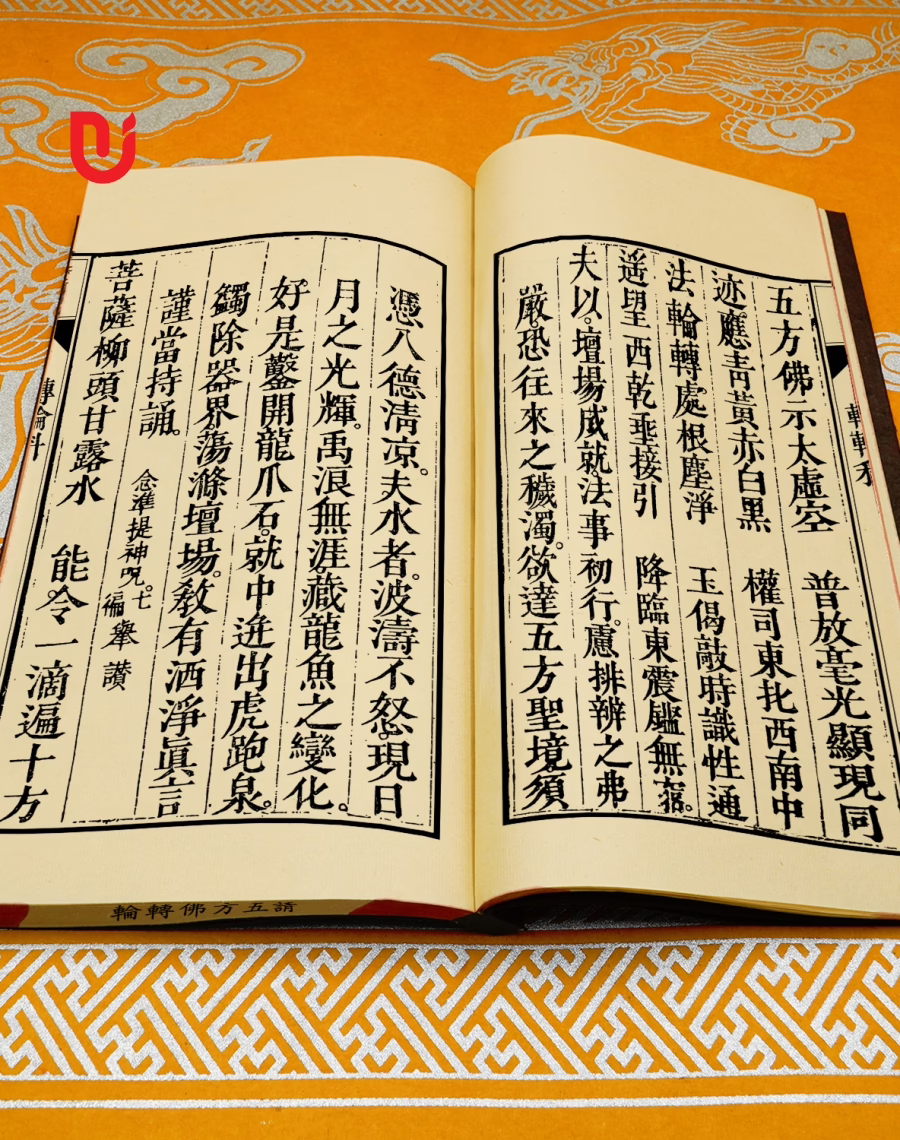 五方佛示太虛空　普放毫光顯現同
迹應青黃赤白黑　權司東北西南中
法輪轉處根塵淨　玉偈敲時識性通
遥望西乾垂接引　降臨東震鑑無窮。
夫以。壇場成就。法事初行。慮排辦之弗
嚴。恐往來之穢濁。欲達五方聖境。須
憑八德淸凉。夫水者。波濤不怒。現日
月之光輝。禹浪無涯。藏龍魚之變化。
好是鑿開龍爪石。就中迸出虎跑泉。
蠲除器界。蕩滌壇場。教有洒淨眞言
謹當持誦。　念準提神呪。七徧　舉讚
菩薩柳頭甘露水　能令一滴遍十方
請五方佛轉輪